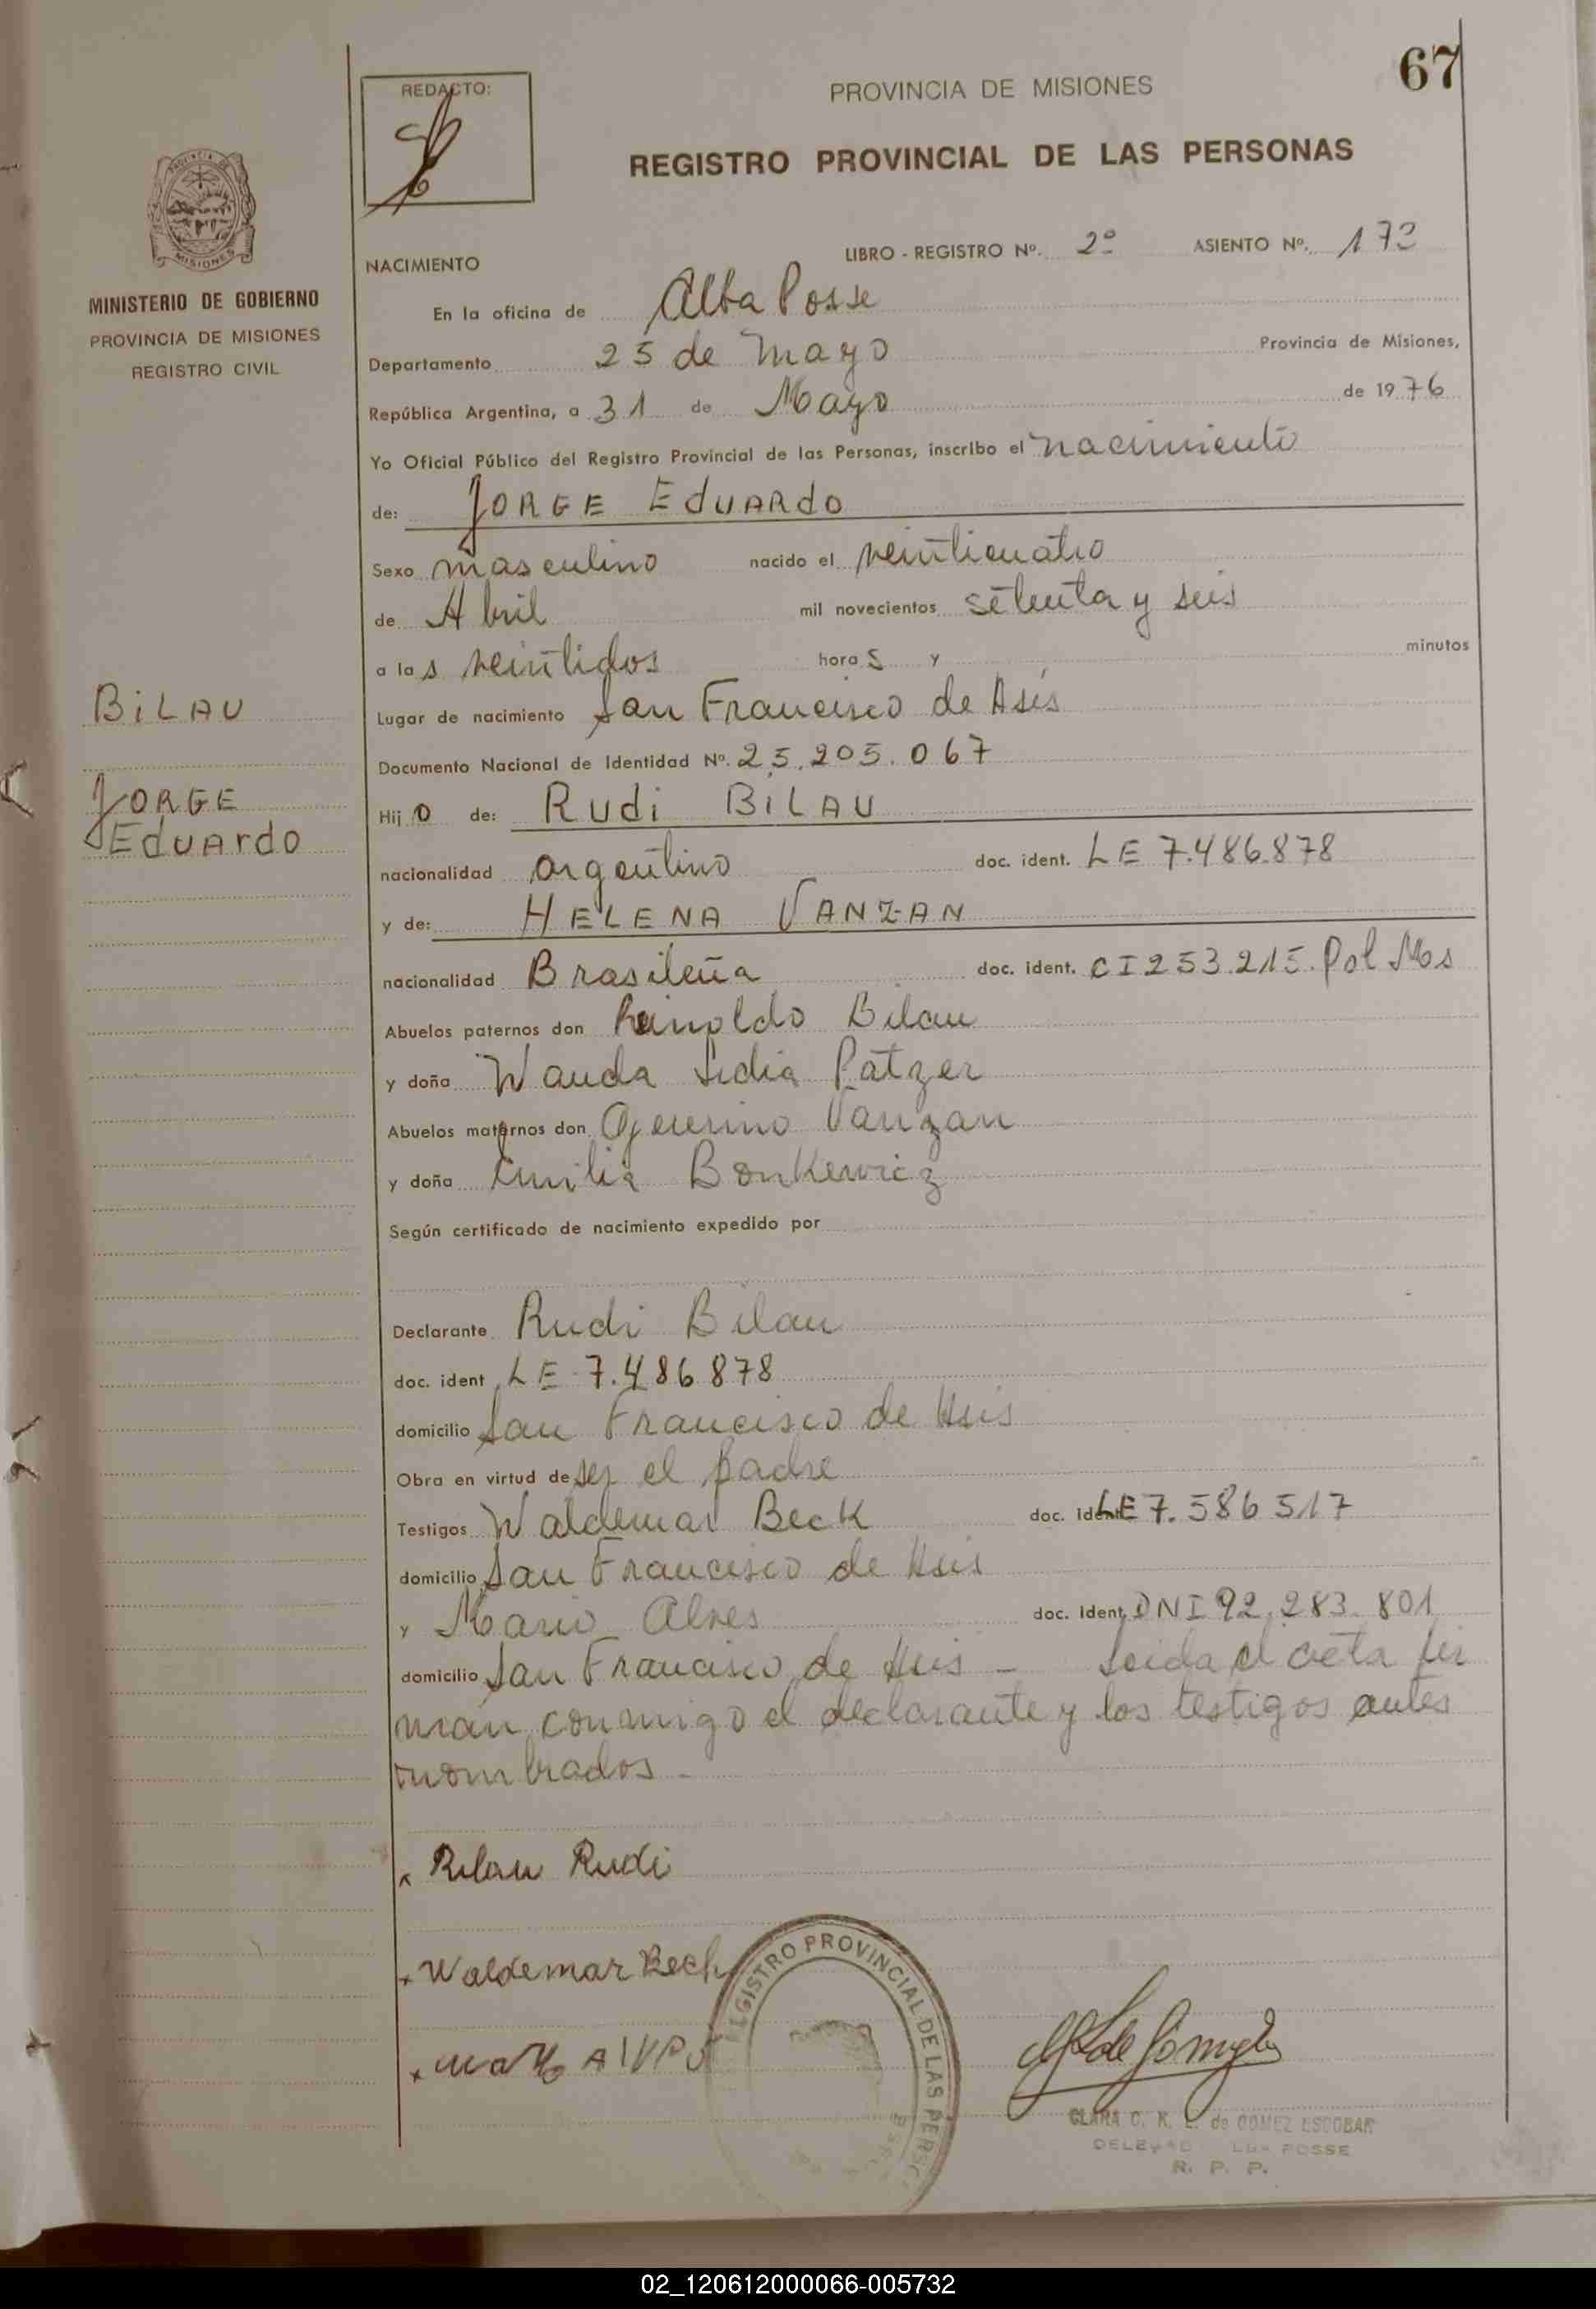 67
REDACTO:
PROVINCIA DE MISIONES
REGISTRO PROVINCIAL DE LAS PERSONAS
MISIONES
MINISTERIO DE GOBIERNO
PROVINCIA DE MISIONES
REGISTRO CIVIL
LIBRO - REGISTRO Nº. 2º ASIENTO Nº. 173
NACIMIENTO
En la oficina de Alba Posse
Departamento 25 de Mayo Provincia de Misiones,
República Argentina, a 31 de Mayo de 1976
Yo Oficial Público del Registro Provincial de las Personas, inscribo el nacimiento
de: JORGE EDUARDO
Sexo masculino nacido el veinticuatro
de Abril mil novecientos setenta y seis
a las veintidos horas y minutos
BILAU
Lugar de nacimiento San Francisco de Asís
Documento Nacional de Identidad Nº. 25.205.067
JORGE
EDUARDO
Hijo de: RUDI BILAU
nacionalidad argentino doc. ident. LE 7.486.878
y de: HELENA VANZAN
nacionalidad Brasileña doc. ident. CI 253.215. Pol Mos
Abuelos paternos don Reinoldo Bilau
y doña Wanda Lidia Patzer
Abuelos maternos don Vanzan
y doña Emilia Bonkewicz
Según certificado de nacimiento expedido por
Declarante Rudi Bilau
doc. ident LE 7.486 878
domicilio San Francisco de Asis
Obra en virtud de ser el padre
Testigos Waldemar Beck doc. ident LE 7.586 517
domicilio San Francisco de Asis
y Mario Alves doc. Ident. DNI 92.283.801
domicilio San Francisco de Asis - Leida el acta fir
man conmigo el declarante y los testigos antes
nombrados -
x Bilau Rudi
x Waldemar Beck
x
REGISTRO PROVINCIAL DE LAS PERSO
CLARA C. K. L. de GOMEZ ESCOBAR
R. P. P.
02_120612000066-005732